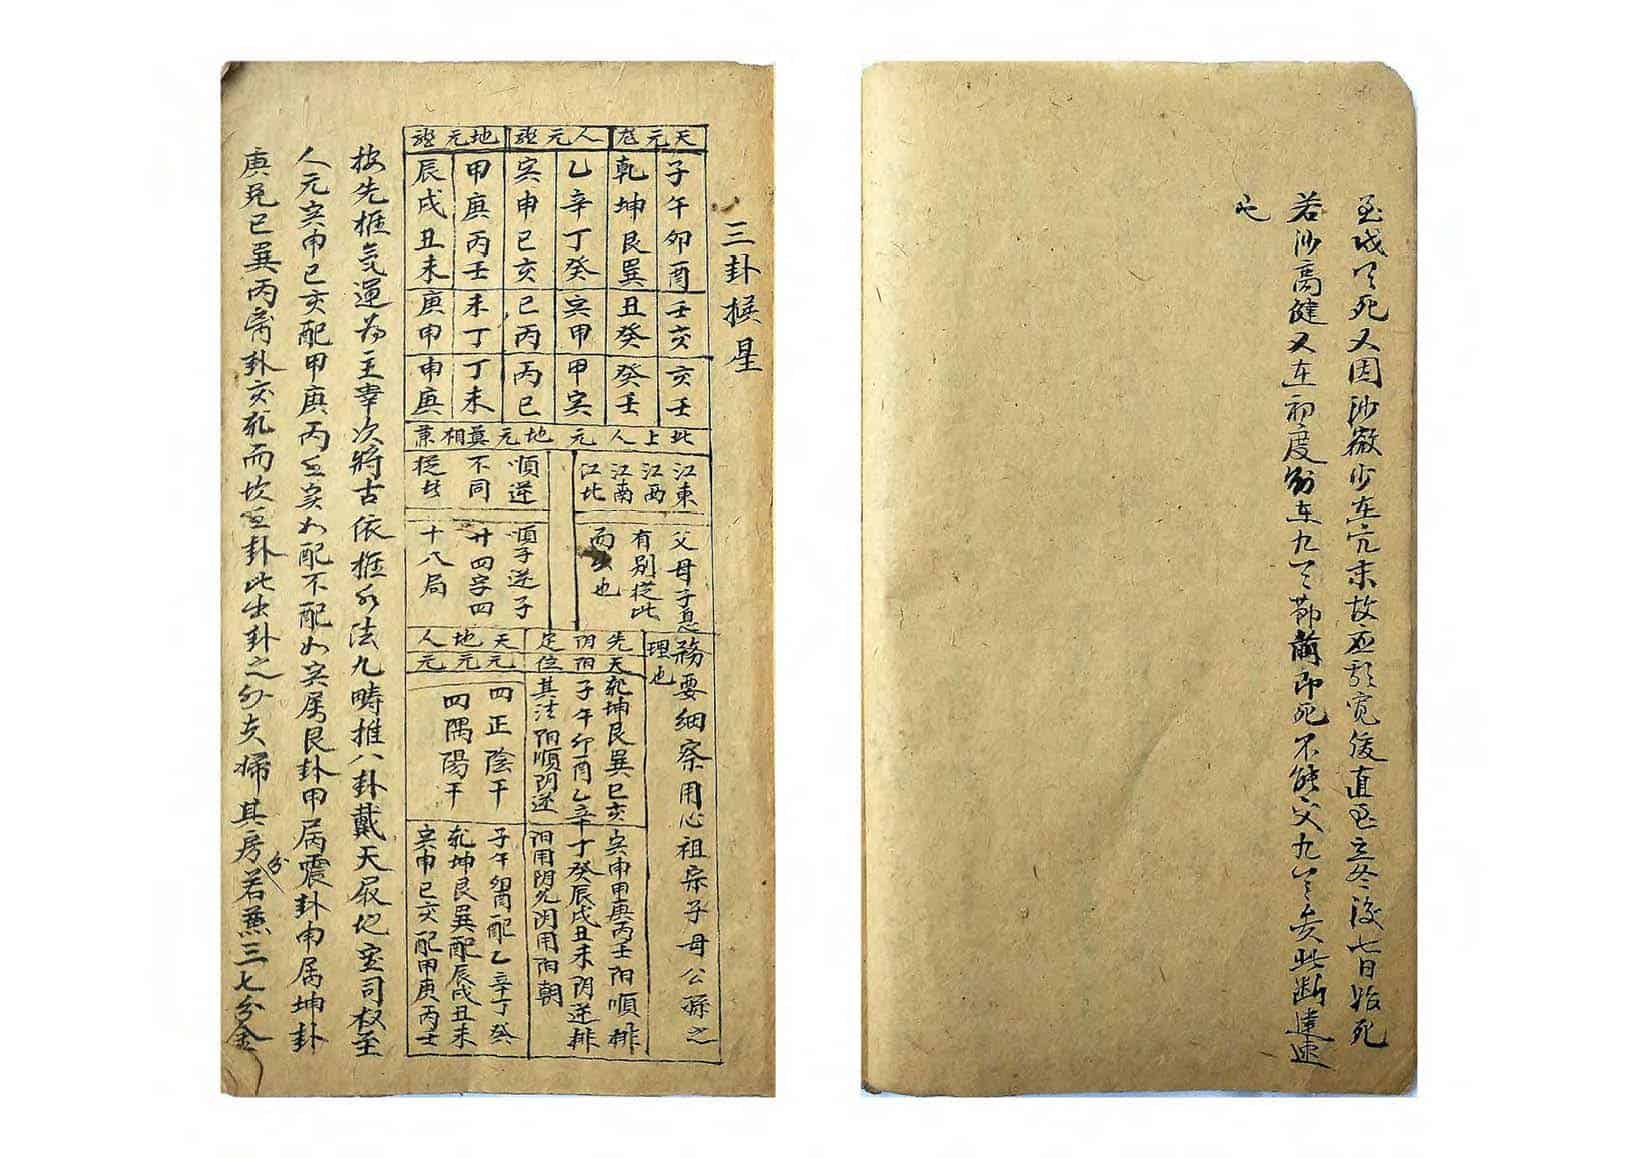 至戌又死又因沙微沙在宂末故至寬後直至立冬後七日始死
若沙高健又在初度分在九又節前即死不能又九矣此斷遠速
也
三卦挨星
天元龙
人元
地元
子午卯酉壬亥亥壬
乾坤艮巽丑癸癸壬
乙辛丁癸寅甲甲寅
寅申巳亥巳丙丙巳
甲庚丙壬未丁丁未
辰戌丑未庚申申庚
此上人元地元真相兼
江東
江西
江南
江北
順逆
不同
從此
父母子息
有別從此
而也
順子逆子
廿四字四
十八局
務要細察用心祖宗子母公孫之
理也
先天
阴阳
定位
天元
地元
人元
乾坤艮巽巳亥寅申甲庚丙壬阳順排
子午卯酉乙辛丁癸辰戌丑未阴逆排
其法阳順阴逆阳用阴先阴用阳朝
四正陰干
四隅陽干
子午卯酉配乙辛丁癸
乾坤艮巽配辰戌丑未
寅申巳亥配甲庚丙壬
按先推氣運為主宰次將古依推水法九疇推八卦戴天履地室司权至
人元寅申巳亥配甲庚丙壬寅如配不配如寅属艮卦甲属震卦申属坤卦
庚兑巳巽丙离卦亥乾而坎壬卦此出卦之分夫婦其房分若兼三七分金